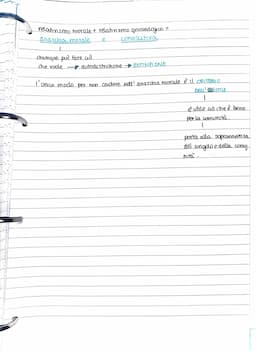 relativismo morale + relativismo gnoseologico =
anarchia morale e conoscitiva
chiunque può fare ciò
che vuole → autodistruzione → ESTINZIONE
l'unico modo per non cadere nell'anarchia morale è il CRITERIO
DELL'UTILE
è utile ciò che è bene
per la comunità
porta alla sopravvivenza
del singolo e della comu
nità.